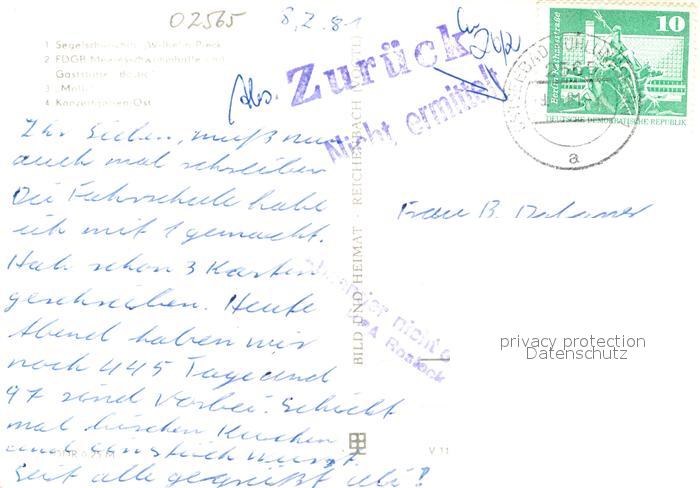 02565
8.2.81
1 Segelschulschiff „Wilhelm Pieck"
2 FDGB Meeresschwimmhalle und
Gaststätte
3
4 Konzertgarten Ost
Zurück
Nicht ermittelt
Abs.
10
Berlin, Rathausstraße
DEUTSCHE DEMOKRATISCHE REPUBLIK
a
Ihr Lieben, muß nun
auch mal schreiben
Die Fahrschule habe
ich mit 1 gemacht.
Hab schon 3 Karten
geschrieben. Heute
Abend haben wir
noch 445 Tage und
97 sind vorbei. Schickt
mal bischen Kuchen
und
Seit alle gegrüßt
BILD UND HEIMAT · REICHENBACH
nicht
Rostock
Frau B.
privacy protection
Datenschutz
V 11